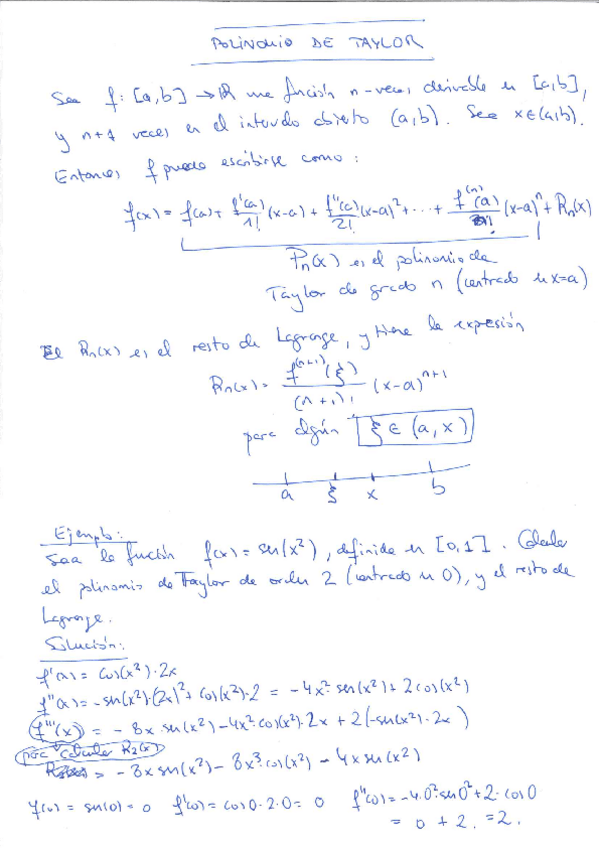 POLINOMIO DE TAYLOR
Sea f: [a,b] → ℝ una función n-veces derivable en [a,b],
y n+1 veces en el intervalo abierto (a,b). Sea x∈(a,b).
Entonces f puede escribirse como:
f(x) = f(a) + f'(a)/1! (x-a) + f''(a)/2! (x-a)² + ... + f⁽ⁿ⁾(a)/n! (x-a)ⁿ + Rn(x)
Pn(x) es el polinomio de
Taylor de grado n (centrado en x=a)
El Rn(x) es el resto de Lagrange, y tiene la expresión
Rn(x) = f⁽ⁿ⁺¹⁾(ξ)/(n+1)! (x-a)ⁿ⁺¹
para algún ξ ∈ (a, x)
a ξ x b
Ejemplo:
Sea la función f(x) = sen(x²), definida en [0,1]. Calcular
el polinomio de Taylor de orden 2 (centrado en 0), y el resto de
Lagrange.
Solución:
f'(x) = cos(x²)·2x
f''(x) = -sen(x²)·(2x)² + cos(x²)·2 = -4x²·sen(x²) + 2cos(x²)
f'''(x) = -8x·sen(x²) - 4x²·cos(x²)·2x + 2(-sen(x²)·2x)
para calcular R₂(x)
= -8x sen(x²) - 8x³·cos(x²) - 4x sen(x²)
f(0) = sen(0) = 0 f'(0) = cos 0·2·0 = 0 f''(0) = -4·0²·sen 0² + 2·cos 0
= 0 + 2. = 2.